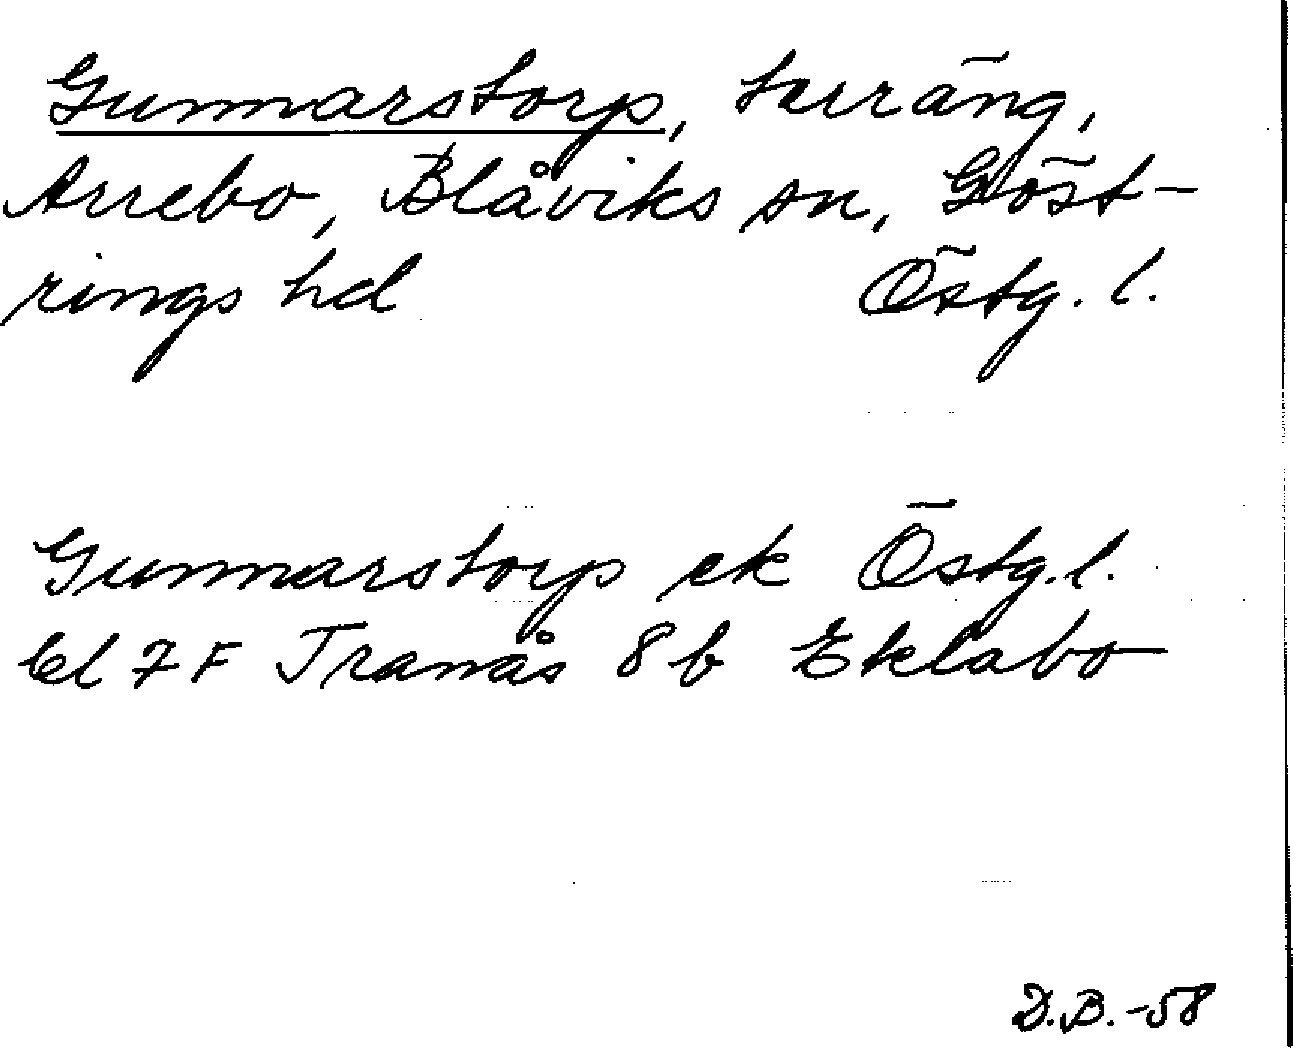 Gunnarstorp, terräng,
Arrebo, Blåviks sn, Göst-
rings hd Östg. l.
Gunnarstorp ek Östg. l.
bl 7 F Tranås 8 b Eklabo
D.B. -58